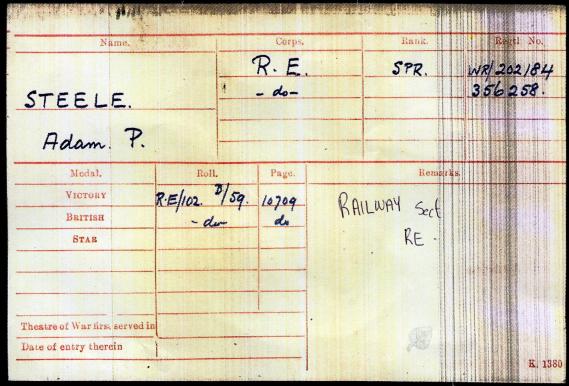 Name. Corps. Rank. Regtl No.
R. E. SPR. WR/202184
STEELE. - do - 356258.
Adam. P.
Medal. Roll. Page. Remarks.
VICTORY R.E/102. B/59. 10709
BRITISH - do - do
STAR
RAILWAY Sect
RE.
Theatre of War first served in
Date of entry therein
K. 1380